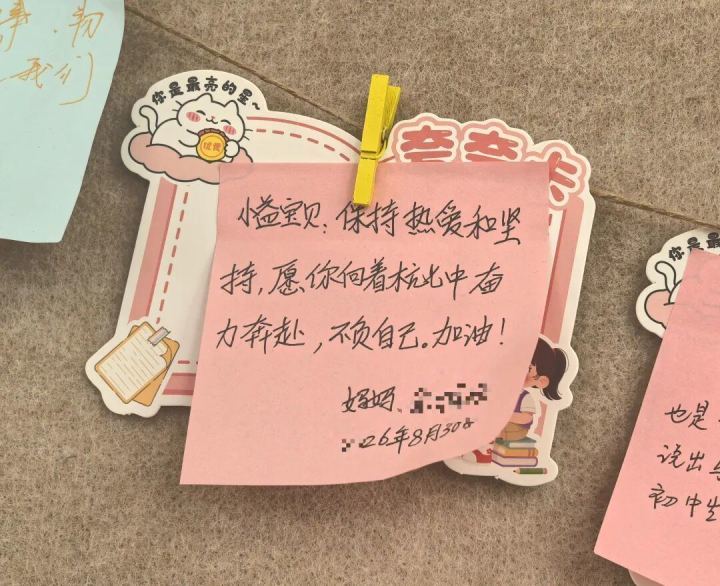 我们
你是最亮的星~
夸夸卡
小益宝贝：保持热爱和坚
持，愿你向着杭中奋
力奔赴，不负自己。加油！
妈妈
26年8月30日
你是最
也是
说出
初中生